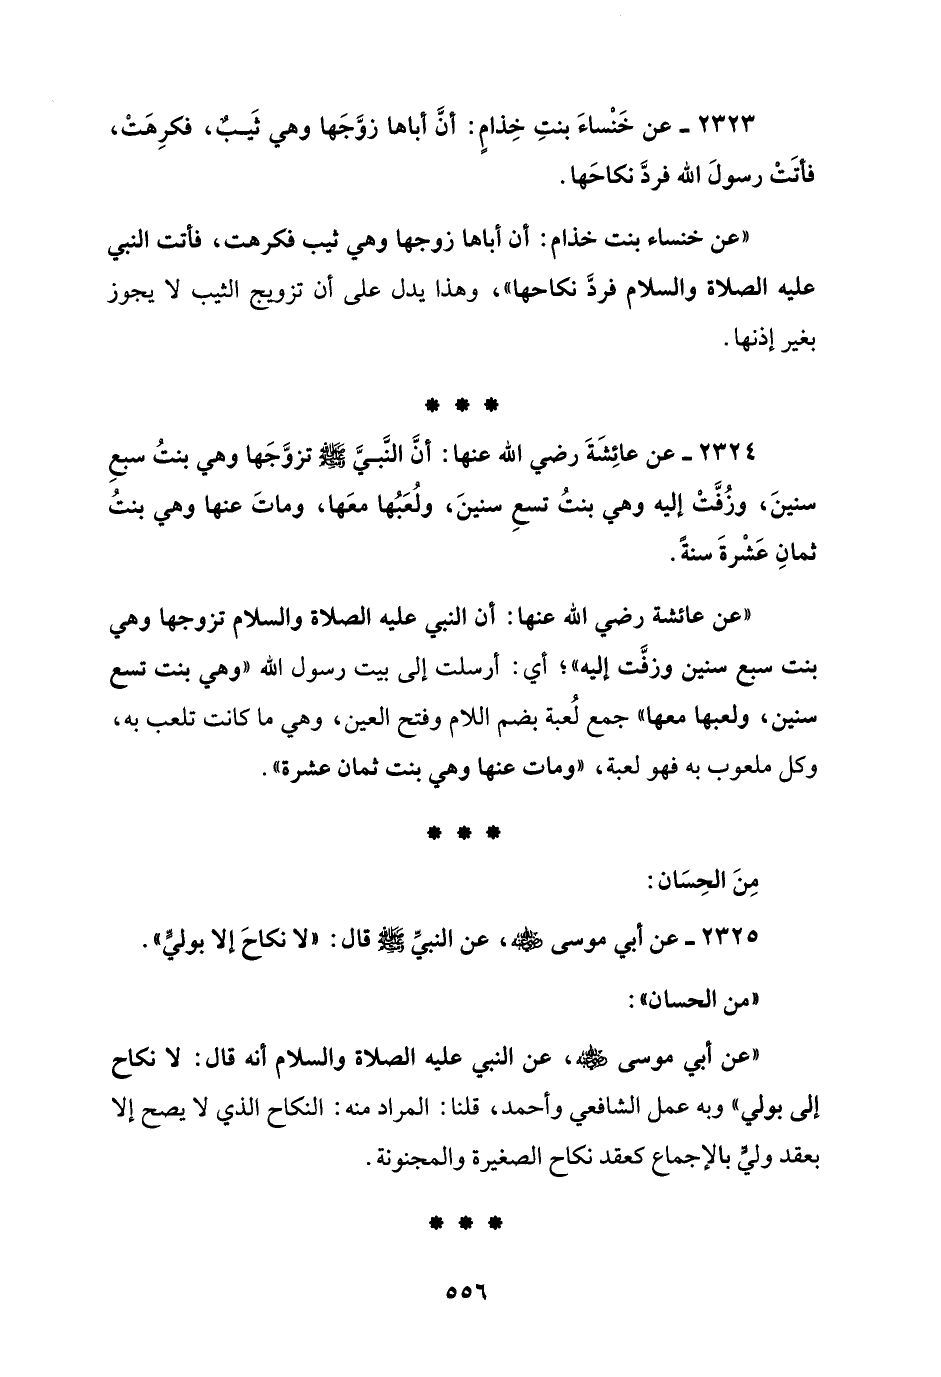 ٢٣٢٣ ـ عن خَنْساءَ بنتِ خِذامٍ: أنَّ أباها زوَّجَها وهي ثَيـبٌ، فكرِهَتْ،
فأتَتْ رسولَ الله فردَّ نكاحَها.
«عن خنساء بنت خذام: أن أباها زوجها وهي ثيب فكرهت، فأتت النبي
عليه الصلاة والسلام فردَّ نكاحها»، وهذا يدل على أن تزويج الثيب لا يجوز
بغير إذنها.
* * *
٢٣٢٤ ـ عن عائِشَةَ رضي الله عنها: أنَّ النَّبـيَّ ﷺ تزوَّجَها وهي بنتُ سبعِ
سنينَ، وزُفَّتْ إليه وهي بنتُ تسعِ سنينَ، ولُعَبُها معَها، وماتَ عنها وهي بنتُ
ثمانِ عَشْرةَ سنةً.
«عن عائشة رضي الله عنها: أن النبي عليه الصلاة والسلام تزوجها وهي
بنت سبع سنين وزفَّت إليه»؛ أي: أرسلت إلى بيت رسول الله «وهي بنت تسع
سنين، ولعبها معها» جمع لُعبة بضم اللام وفتح العين، وهي ما كانت تلعب به،
وكل ملعوب به فهو لعبة، «ومات عنها وهي بنت ثمان عشرة».
* * *
مِنَ الحِسَان:
٢٣٢٥ ـ عن أبي موسى ﷺ، عن النبيِّ ﷺ قال: «لا نكاحَ إلا بوليٍّ».
«من الحسان»:
«عن أبي موسى ﷺ، عن النبي عليه الصلاة والسلام أنه قال: لا نكاح
إلى بولي» وبه عمل الشافعي وأحمد، قلنا: المراد منه: النكاح الذي لا يصح إلا
بعقد وليٍّ بالإجماع كعقد نكاح الصغيرة والمجنونة.
* * *
٥٥٦